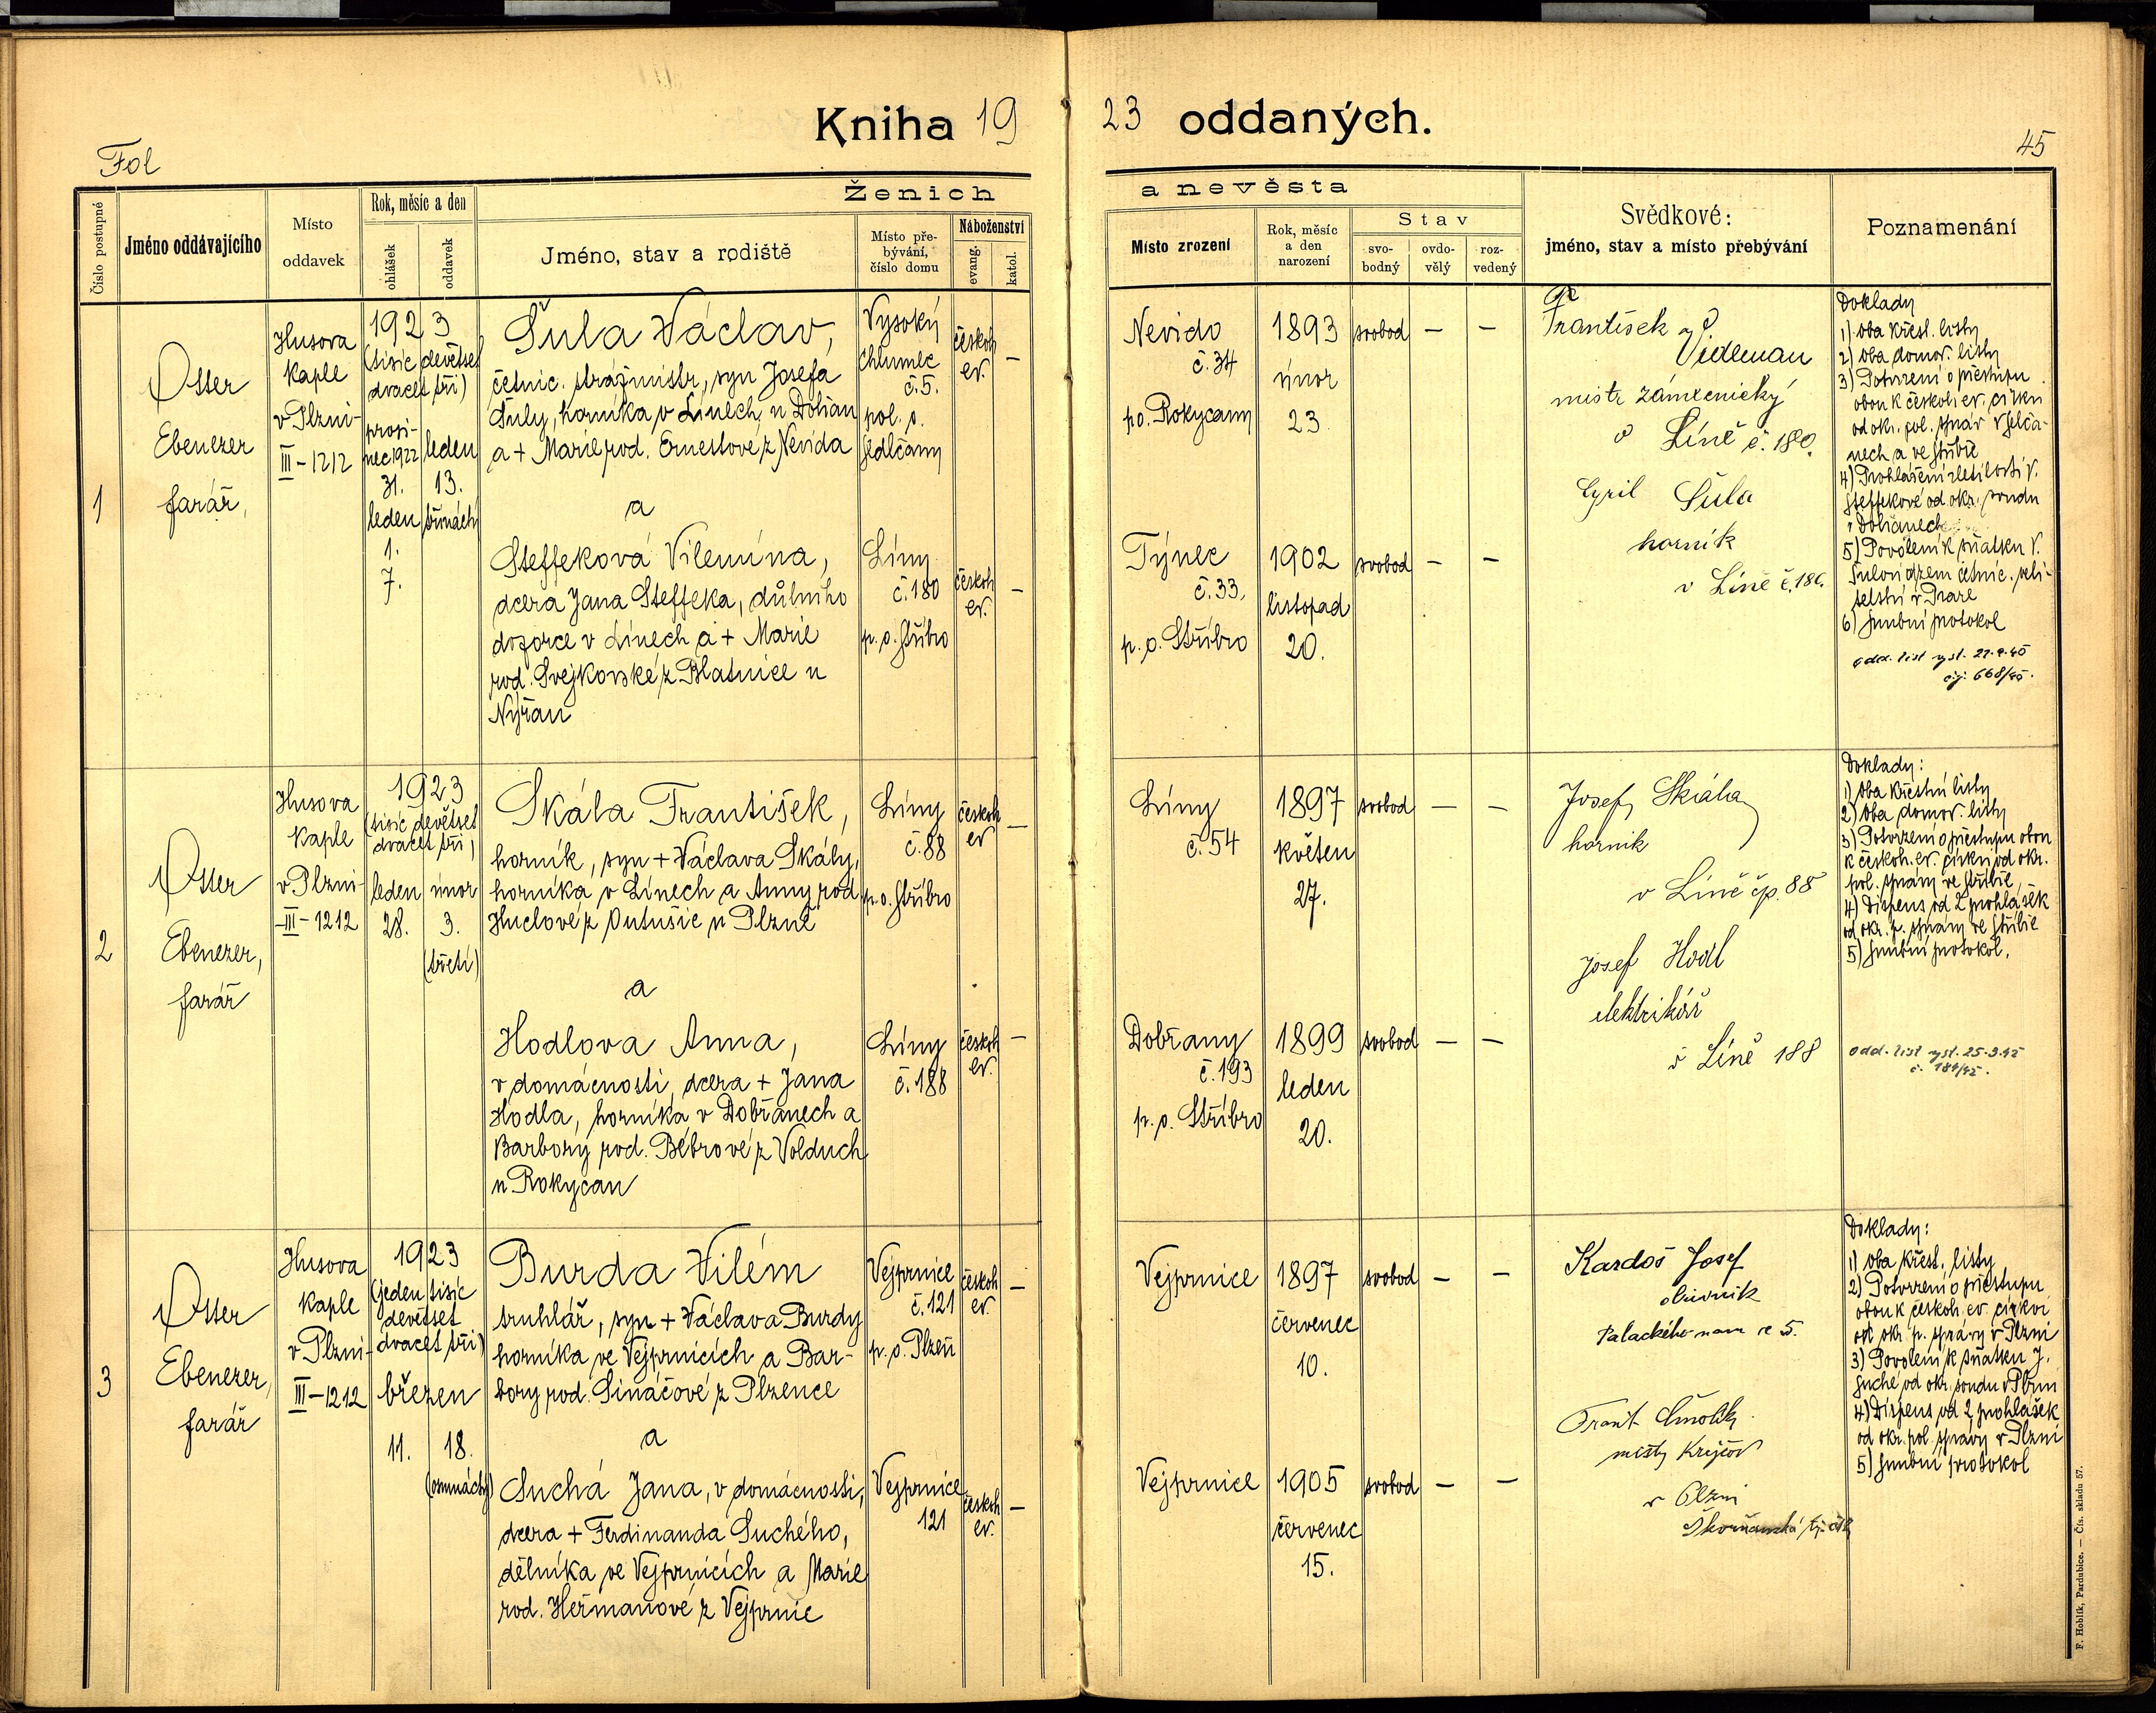 Kniha 19
23 oddaných.
Fol
45
Číslo postupné
Jméno oddávajícího
Místo
oddavek
Rok, měsíc a den
ohlášek
oddavek
Ženich
Jméno, stav a rodiště
Místo pře-
bývání,
číslo domu
Náboženství
evang.
katol.
a nevěsta
Místo zrození
Rok, měsíc
a den
narození
Stav
svo-
bodný
ovdo-
vělý
roz-
vedený
Svědkové:
jméno, stav a místo přebývání
Poznamenání
1
Otter
Ebenezer
farář,
Husova
kaple
v Plzni-
III-1212
1923
(tisíc devětset
dvacet tři)
prosi-
nec 1922
31.
leden
1.
7.
leden
13.
třináctý
Šula Václav,
četnic. strážmistr, syn Josefa
Šuly, horníka v Línech u Dobřan
a + Marie rod. Ernestové z Nevida
a
Steffeková Vilemína,
dcera Jana Steffeka, důlního
dozorce v Línech a + Marie
rod. Svejkovské z Blatnice u
Nýřan
Vysoký
chlumec
č.5.
pol. o.
Sedlčany
Líny
č.180
p.o. Stříbro
českob
ev.
–
českob
ev.
–
Nevido
č.34
p.o. Rokycany
1893
únor
23.
svobod – –
Týnec
č.33,
p.o. Stříbro
1902
listopad
20.
svobod – –
František
Videman
mistr zámečnický
v Líně č.180.
Cyril Šula
horník
v Líně č.180.
Doklady
1) Oba křest. listy
2) Oba domov. listy
3) Potvrzení o přestupu
obou k českob. ev. církvi
od okr. pol. správ v Sedlča-
nech a ve Stříbře
4) Prohlášení zletilosti V.
Steffekové od okr. soudu
v Dobřanech
5) Povolení k sňatku V.
Šulovi dzem. četnic. veli-
telství v Praze
6) Snubní protokol
odd. list vyst. 22.9.40
č.j. 668/40.
2
Otter
Ebenezer,
farář
Husova
kaple
v Plzni-
-III-1212
1923
(tisíc devětset
dvacet tři)
leden
28.
únor
3.
(třetí)
Skála František,
horník, syn + Václava Skály,
horníka v Línech a Anny rod.
Huclové z Vutušic u Plzně
a
Hodlova Anna,
v domácnosti, dcera + Jana
Hodla, horníka v Dobřanech a
Barbory rod. Bébrové z Volduch
u Rokycan
Líny
č.88
p.o. Stříbro
Líny
č.188
českob
ev
–
českob
ev.
–
Líny
č.54
1897
květen
27.
svobod – –
Dobřany
č.193
p.o. Stříbro
1899
leden
20.
svobod – –
Josef Skála
horník
v Líně čp.88
Josef Hodl
elektrikář
v Líně 188
Doklady:
1) Oba křestní listy
2) Oba domov. listy
3) Potvrzení o přestupu obou
k českob. ev. církvi od okr.
pol. správy ve Stříbře
4) Dispens od 2 prohlášek
od okr. p. správy ve Stříbře
5) Snubní protokol.
odd. list vyst. 25.3.42
č. 184/42.
3
Otter
Ebenezer,
farář
Husova
kaple
v Plzni-
III-1212
1923
(jeden tisíc
devětset
dvacet tři)
březen
11. 18.
(osmnáctý)
Burda Vilém
truhlář, syn + Václava Burdy
horníka ve Vejprnicích a Bar-
bory rod. Sináčové z Plzence
a
Suchá Jana, v domácnosti,
dcera + Ferdinanda Suchého,
dělníka ve Vejprnicích a Marie
rod. Heřmanové z Vejprnic
Vejprnice
č.121
p.o. Plzeň
Vejprnice
121
českob
ev.
–
českob
ev.
–
Vejprnice
1897
červenec
10.
svobod – –
Vejprnice
1905
červenec
15.
svobod – –
Kardoš Josef
obuvník
Palackého nam č 5.
Frant Smolík
mistr krejčov
v Plzni
Doklady:
1) Oba křest. listy
2) Potvrzení o přestupu
obou k českob. ev. církvi
od okr. p. správy v Plzni
3) Povolení k sňatku J.
Suché od okr. soudu v Plzni
4) Dispens od 2 prohlášek
od okr. pol. správy v Plzni
5) Snubní protokol
F. Hoblík, Pardubice. — Čís. skladu 57.